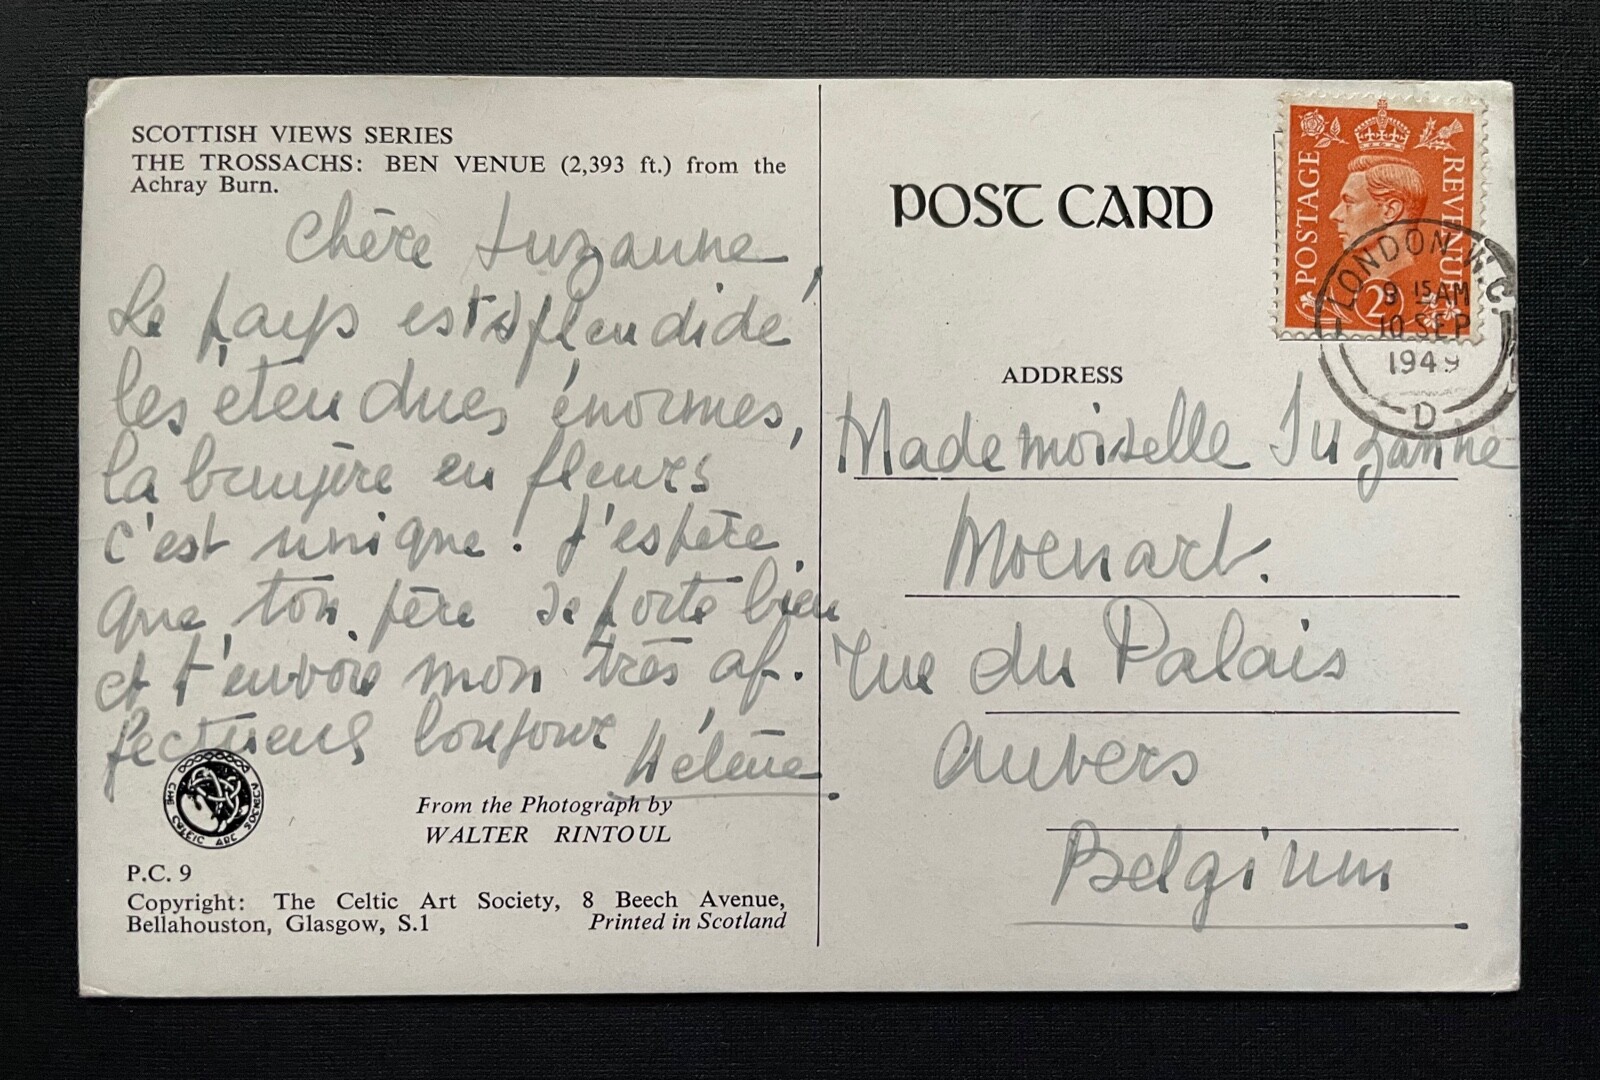 SCOTTISH VIEWS SERIES
THE TROSSACHS: BEN VENUE (2,393 ft.) from the
Achray Burn.
Chère Suzanne,
Le pays est splendide
les étendues énormes,
la bruyère en fleurs
c'est unique. J'espère
que ton père se porte bien
et t'envoie mon très af.
fectueux bonjour
Hélène.
THE CELTIC ART SOCIETY
From the Photograph by
WALTER RINTOUL
P.C. 9
Copyright: The Celtic Art Society, 8 Beech Avenue,
Bellahouston, Glasgow, S.1 Printed in Scotland
POST CARD
POSTAGE
REVENUE
2D
LONDON W.C.
9 15 AM
10 SEP
1949
D
ADDRESS
Mademoiselle Suzanne
Moenart.
rue du Palais
Anvers
Belgium